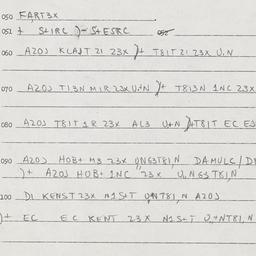 050 FART3X
051 + S+IRC )- S+ESRC
060 A20J KLAJT 21 23X )+ T8IT 21 23X U.N
070 A20J TI3N MIR 23X U+N )+ T813N 1NC 23X
080 A20J T8IT 1R 23X AL3 U+N )+T8IT EC
090 A20J HOB+ M3 23X DAMULC/
)+ A20J HOB+ 1NC 23X U.NGST81,N
100 DI KENST 23X N1S+T A20J
)+ EC EC KENT 23X N1S+T